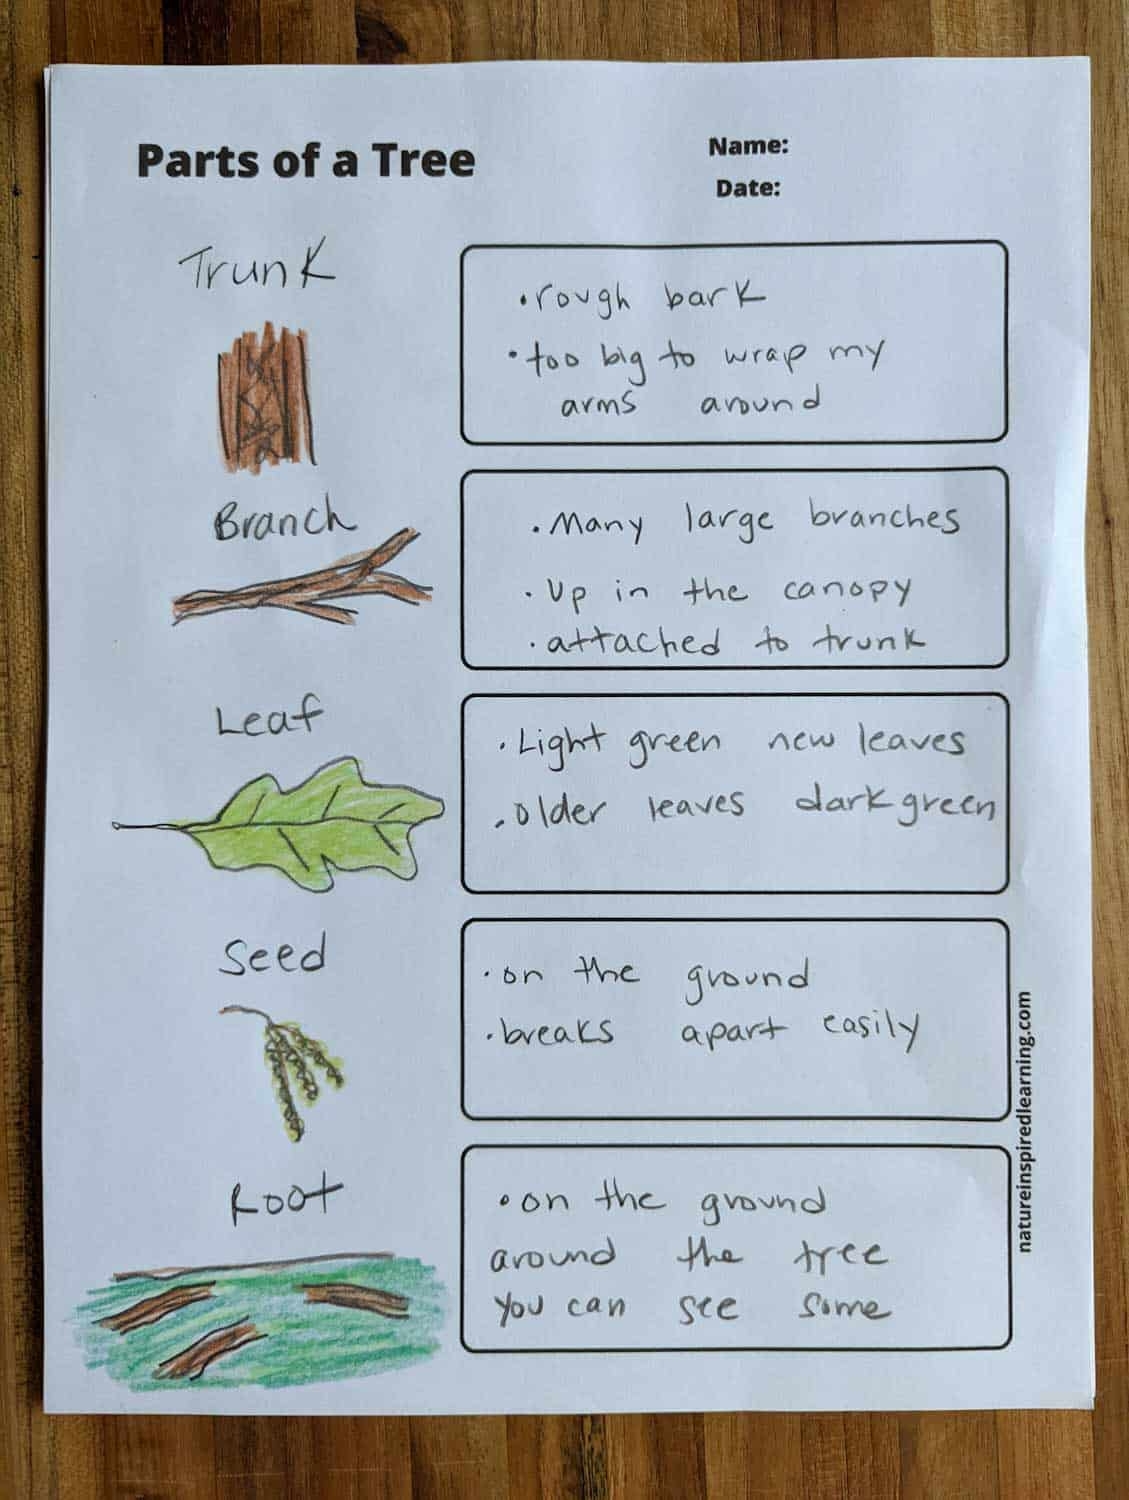 Parts of a Tree
Name:
Date:
Trunk
•rough bark
•too big to wrap my
arms around
Branch
•Many large branches
•Up in the canopy
•attached to trunk
Leaf
•Light green new leaves
•older leaves dark green
Seed
•on the ground
•breaks apart easily
Root
•on the ground
around the tree
You can see some
natureinspiredlearning.com